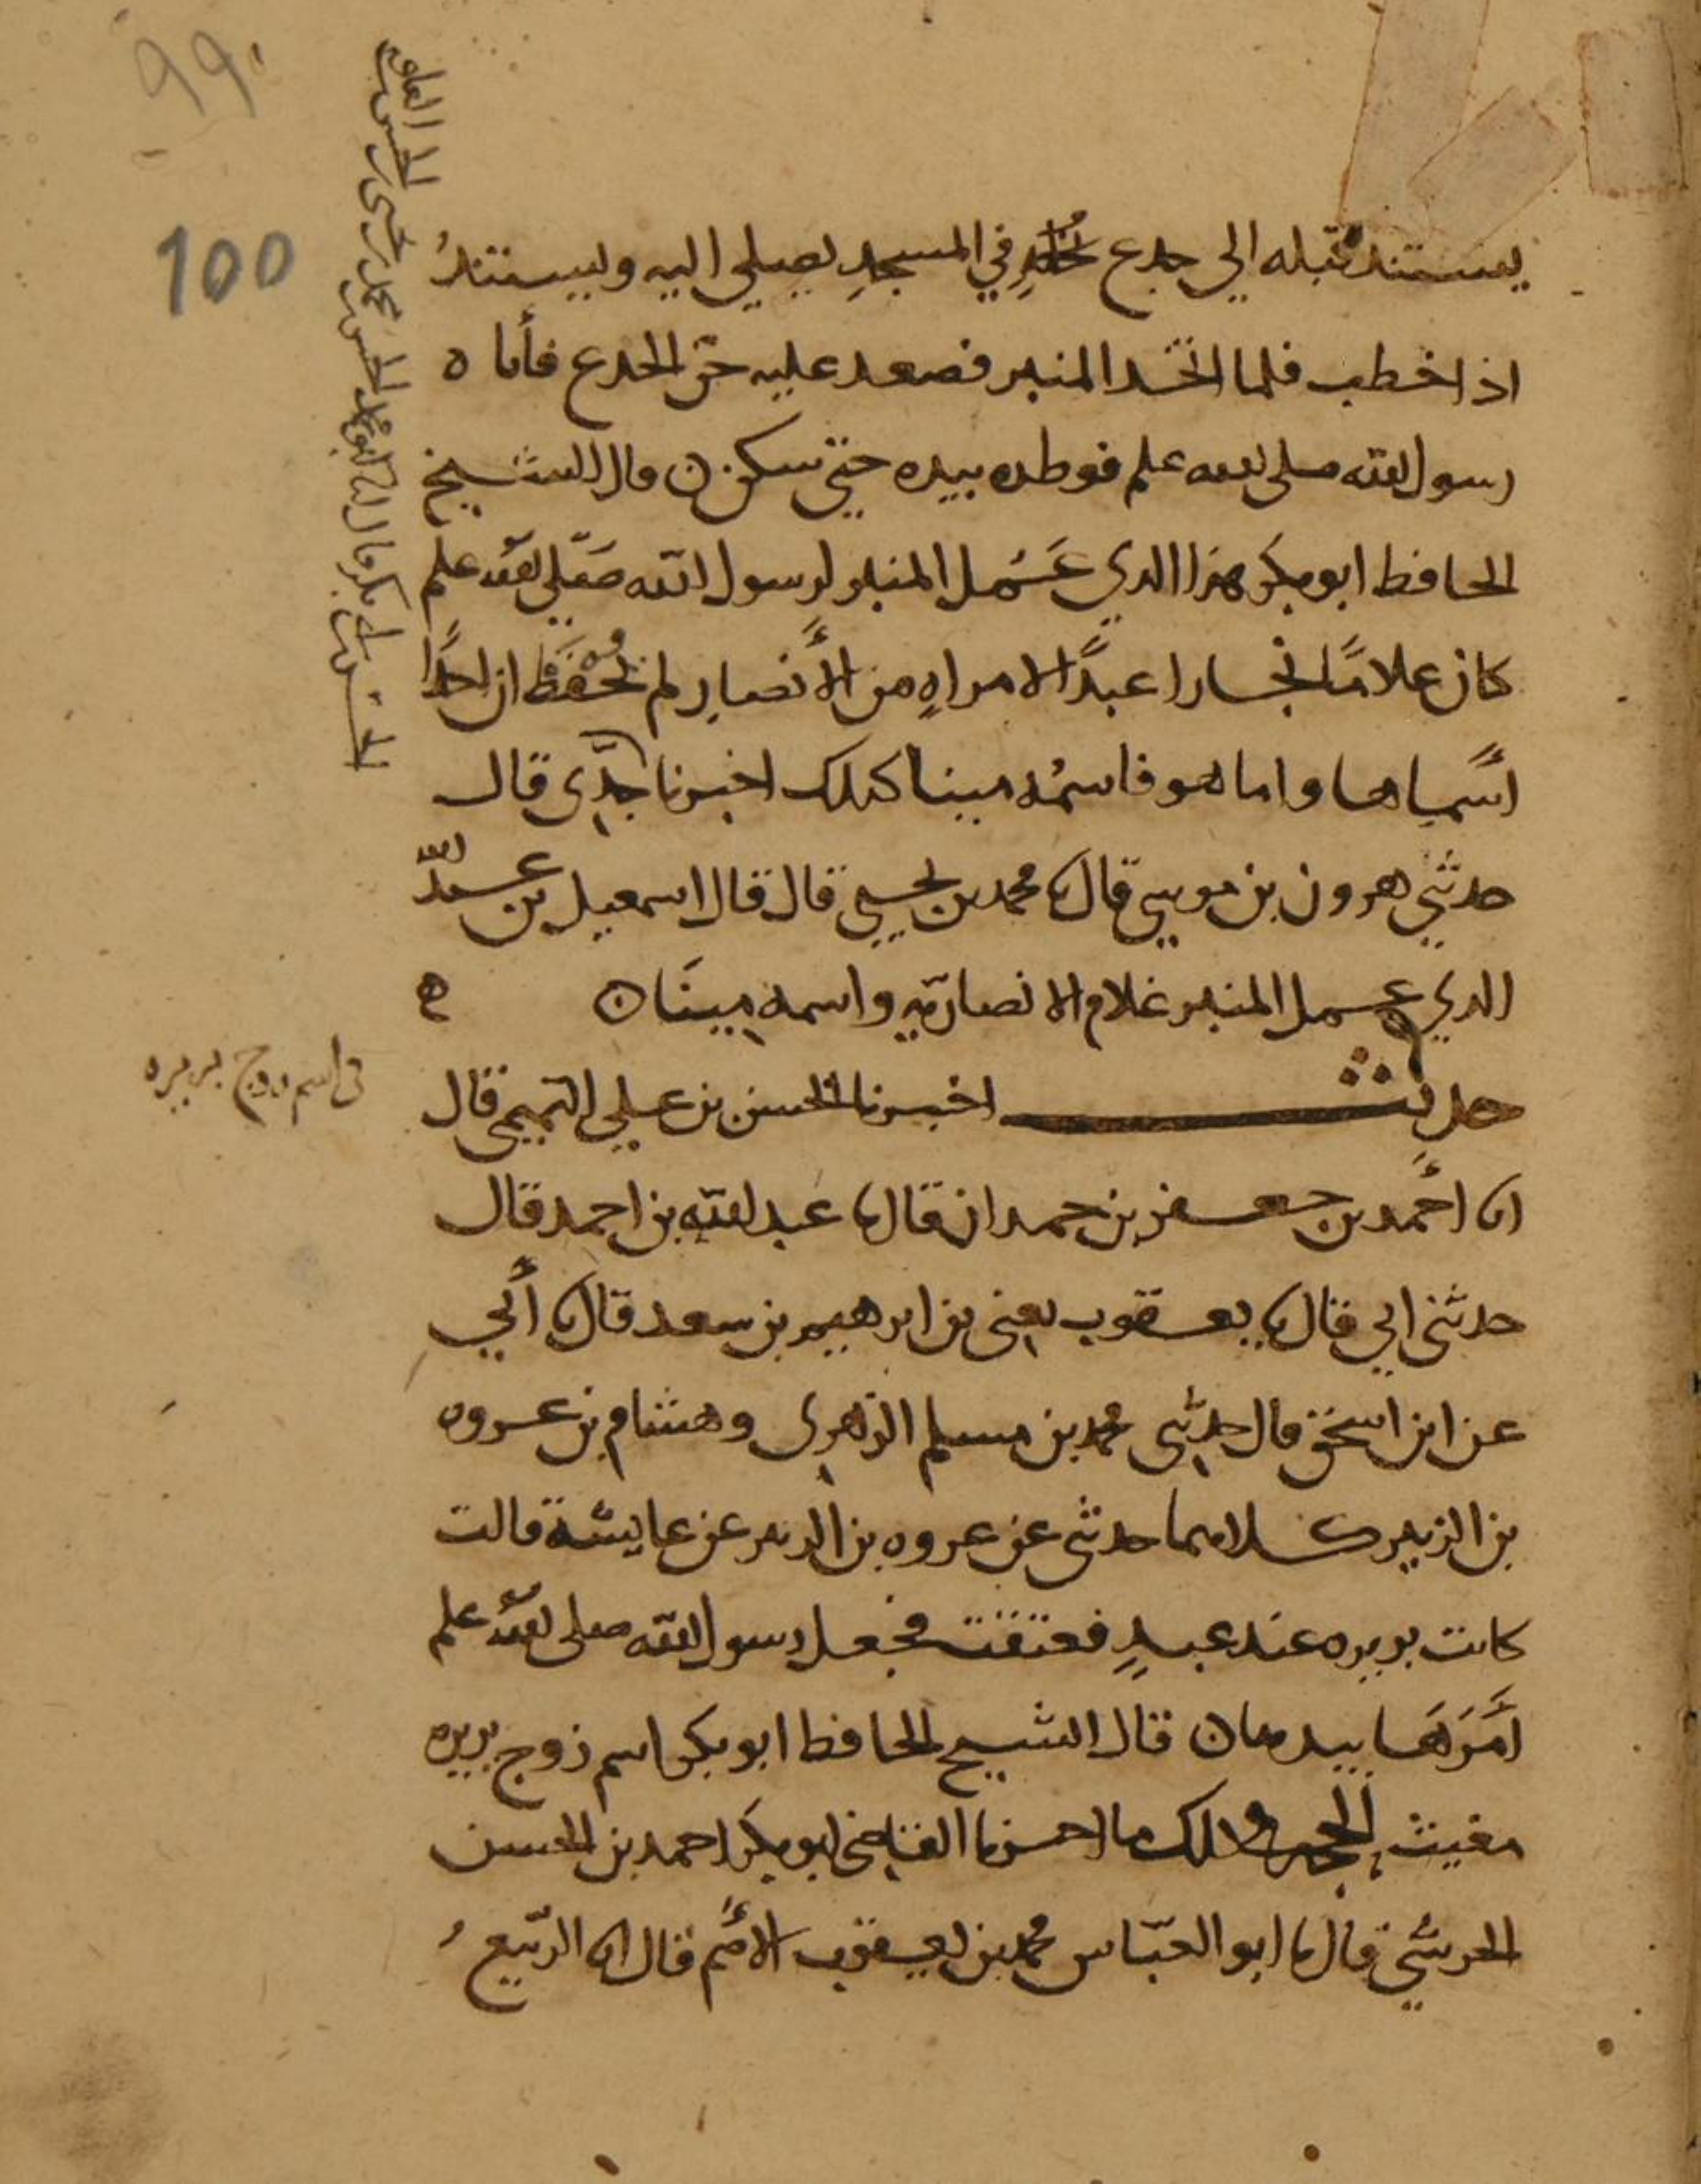 99
100
يستند قبله الى جدع في المسجدِ يصلي اليه ويستندُ
اذا خطب فلما اتخد المنبر فصعد عليه حنّ الجدع فأتا ه
رسول الله صلى الله علم فوطده بيده حتى سكن ن قال الشيخ
الحافظ ابو بكر هذا الدي عَمل المنبر لرسول الله صَلّى الله علم
كان غلامًا نجارا عبدًا لامراهٍ من الأنصارِ لم نحفظ ان احدًا
أسماها واما هو فاسمُه مينا كدلك اخبرنا جدّى قال
حدثني هرون بن موسى قال نا محمد بن يحيى قال قال اسمعيل بن عبد الله
الدي عمل المنبر غلام الانصاريّه واسمه مينَا ن ه
في اسم زوج بريره
حديث اخبرنا الحسن بن علي التميمى قال
انا أحمد بن جعفر بن حمدان قال نا عبد الله بن احمد قال
حدثنى ابي قال نا يعقوب يعنى بن ابرهيم بن سعد قال نا أبي
عن ابن اسحق قال حدثنى محمد بن مسلم الزهرى وهشام بن عروه
بن الزبير كلاهما حدثنى عن عروه بن الزبير عن عايشة قالت
كانت بريره عند عبدٍ فعتقت فجعل رسول الله صلى الله علم
أمَرَهَا بيدها ن قال الشيخ الحافظ ابو بكر اسم زوج بريره
مغيث الحجه في دلك ما اخبرنا القاضى ابو بكر احمد بن الحسن
الحرشي قال نا ابو العبّاس محمد بن يعقوب الأصَم قال انا الرّبيع